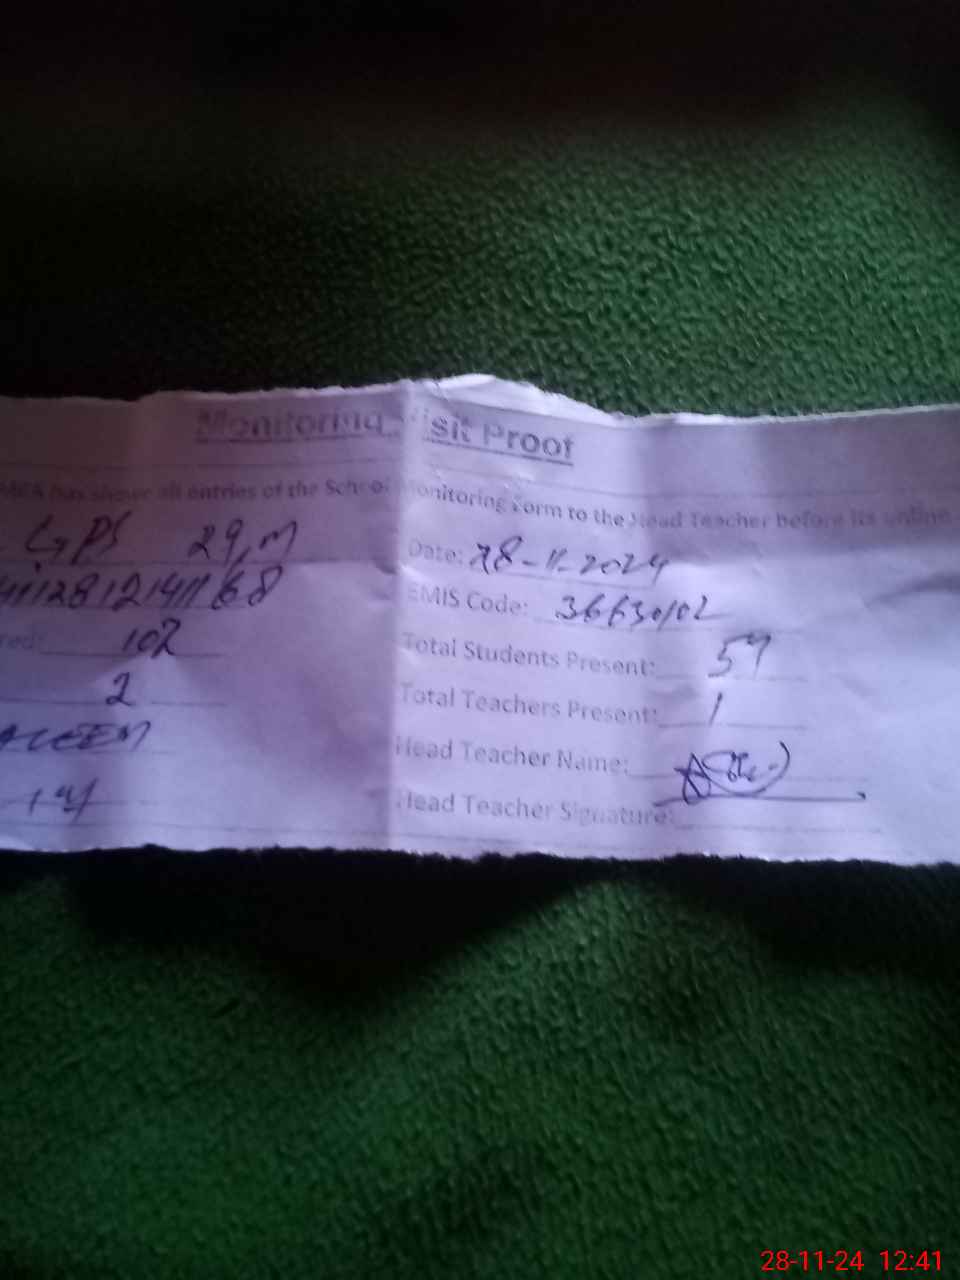 Monitoring Visit Proof
MEA has shown all entries of the School Monitoring Form to the Head Teacher before its online
GPS 29, m Date: 28-11-2024
4112812141168 EMIS Code: 36630102
red: 102 Total Students Present: 57
2 Total Teachers Present: 1
Head Teacher Name:
Head Teacher Signature:
28-11-24 12:41